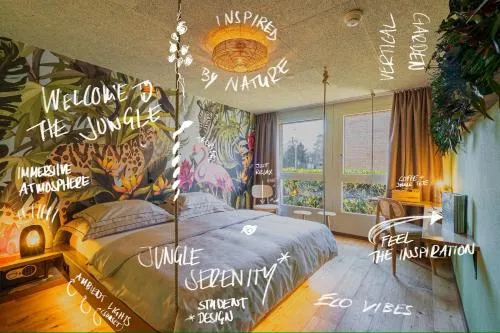 INSPIRED
BY NATURE
VERTICAL
GARDEN
WELCOME TO
THE JUNGLE
IMMERSIVE
ATMOSPHERE
JUST
RELAX
FEEL
THE INSPIRATION
JUNGLE
SERENITY*
*STUDENT
DESIGN
ECO VIBES
AMBIENT LIGHTS